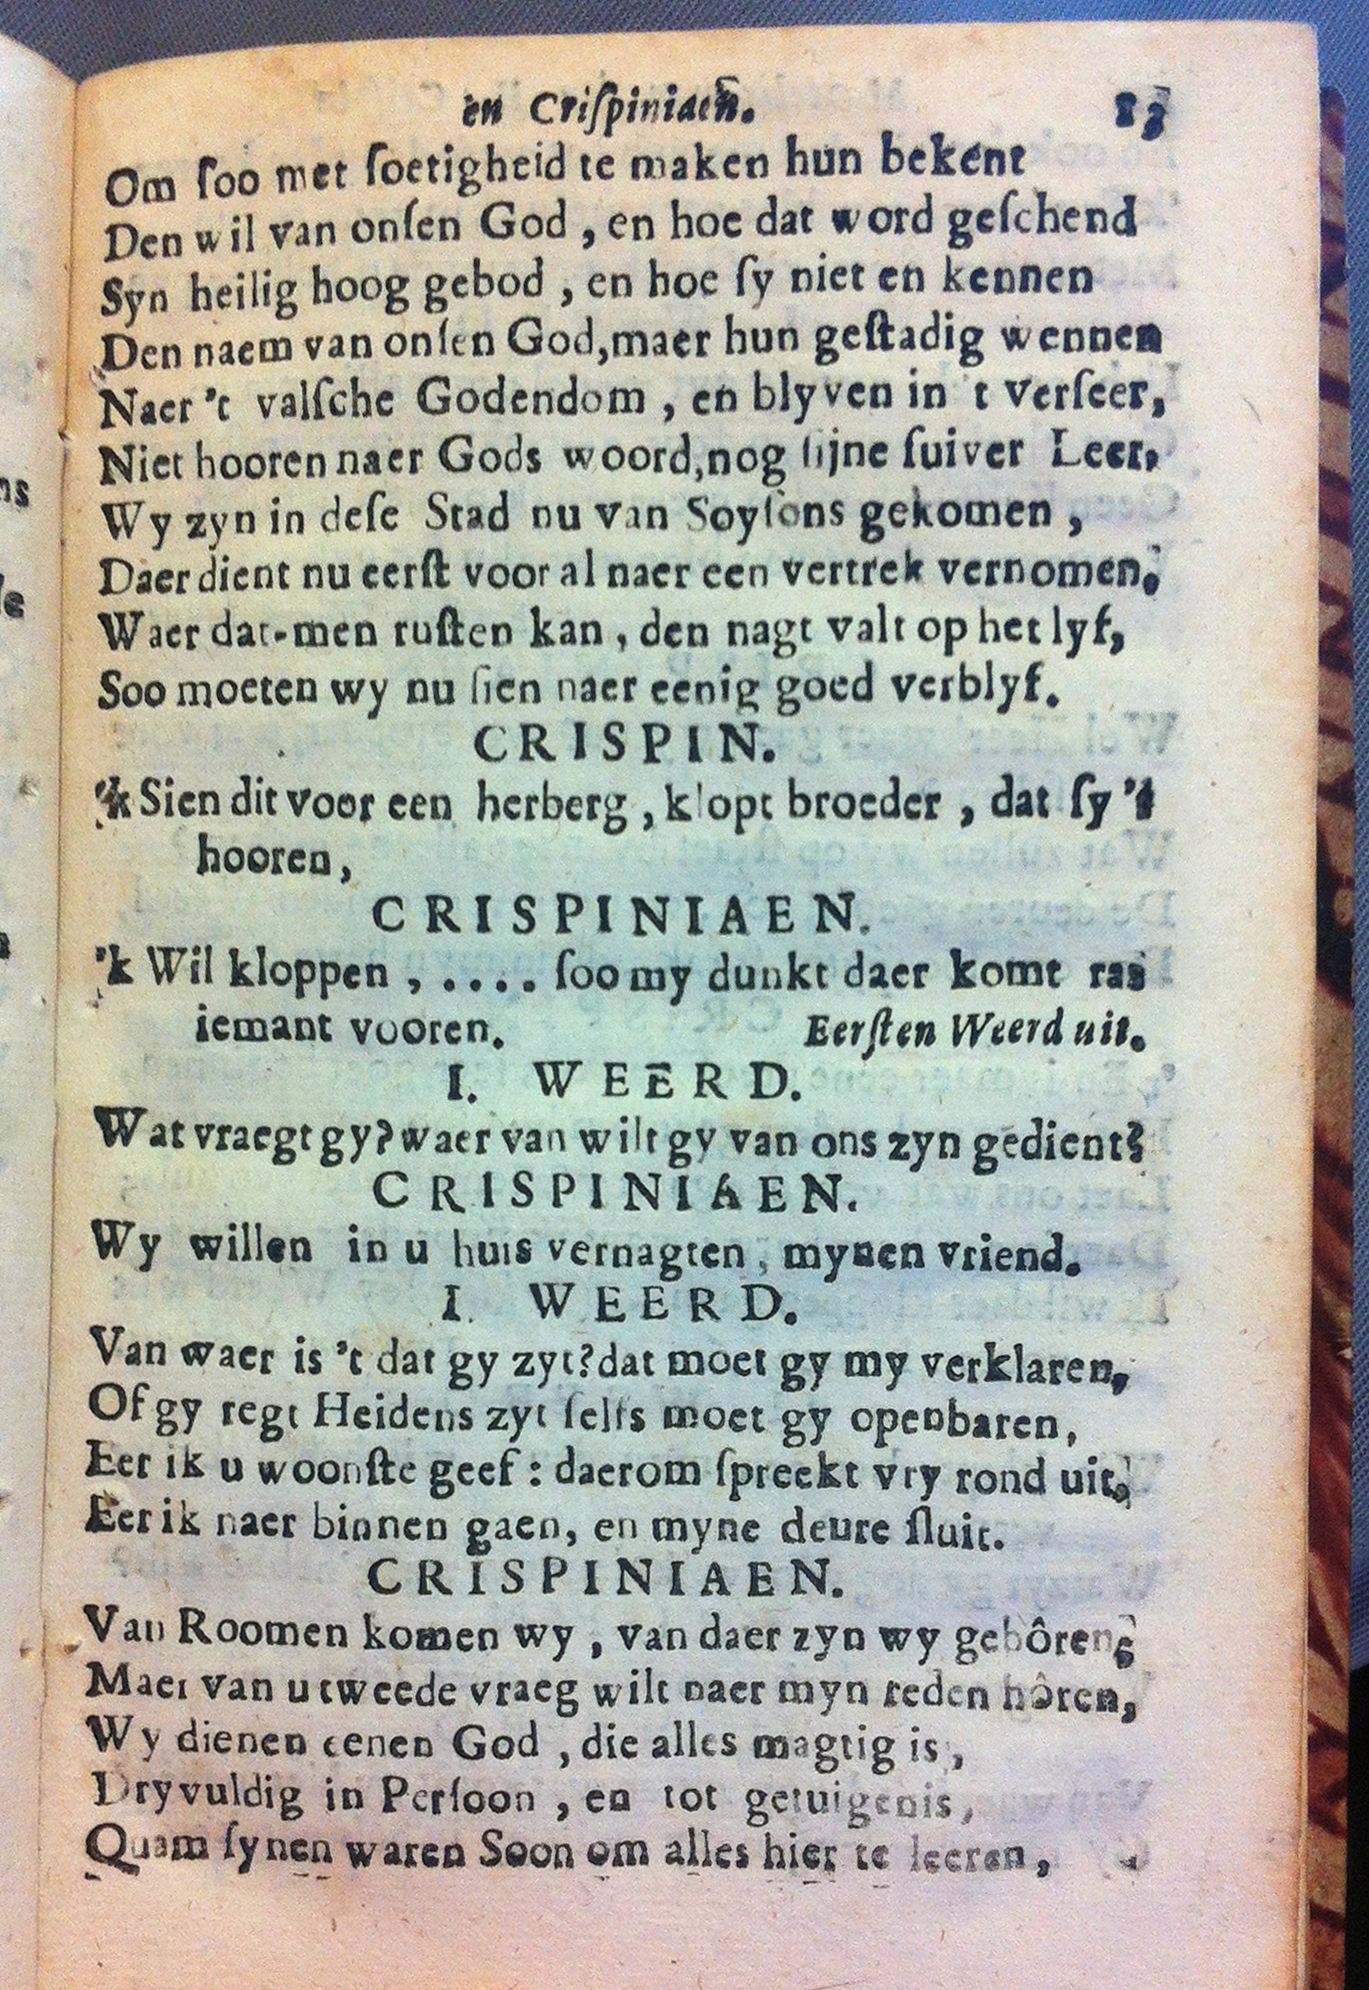 en Criſpiniaen. 83
Om ſoo met ſoetigheid te maken hun bekent
Den wil van onſen God , en hoe dat word geſchend
Syn heilig hoog gebod , en hoe ſy niet en kennen
Den naem van onſen God,maer hun geſtadig wennen
Naer 't valſche Godendom , en blyven in 't verſeer,
Niet hooren naer Gods woord,nog ſijne ſuiver Leer,
Wy zyn in deſe Stad nu van Soyſons gekomen ,
Daer dient nu eerſt voor al naer een vertrek vernomen,
Waer dat-men ruſten kan , den nagt valt op het lyf,
Soo moeten wy nu ſien naer eenig goed verblyf.
CRISPIN.
'k Sien dit voor een herberg , klopt broeder , dat ſy 't
hooren,
CRISPINIAEN.
'k Wil kloppen , .... ſoo my dunkt daer komt ras
iemant vooren. Eerſten Weerd uit.
I. WEERD.
Wat vraegt gy? waer van wilt gy van ons zyn gedient?
CRISPINIAEN.
Wy willen in u huis vernagten , mynen vriend.
I. WEERD.
Van waer is 't dat gy zyt? dat moet gy my verklaren,
Of gy regt Heidens zyt ſelfs moet gy openbaren,
Eer ik u woonſte geef : daerom ſpreekt vry rond uit,
Eer ik naer binnen gaen, en myne deure ſluit.
CRISPINIAEN.
Van Roomen komen wy , van daer zyn wy gebôren;
Maer van u tweede vraeg wilt naer myn reden hôren,
Wy dienen eenen God , die alles magtig is ,
Dryvuldig in Perſoon , en tot getuigenis,
Quam ſynen waren Soon om alles hier te leeren,